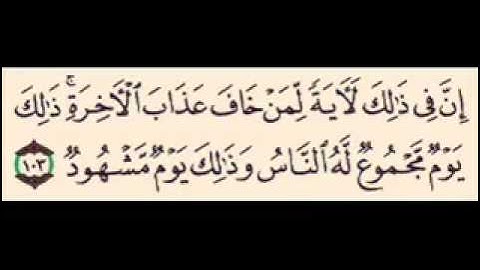 إِنَّ فِى ذَٰلِكَ لَـَٔايَةً لِّمَنۡ خَافَ عَذَابَ ٱلۡأٓخِرَةِۚ ذَٰلِكَ
يَوۡمٌ مَّجۡمُوعٌ لَّهُ ٱلنَّاسُ وَذَٰلِكَ يَوۡمٌ مَّشۡهُودٌ ١٠٣